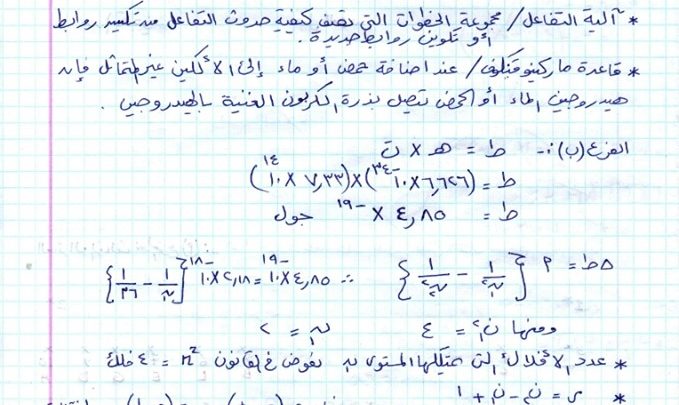 * آلية التفاعل / مجموعة الخطوات التي تصف كيفية حدوث التفاعل من تكسير روابط
أو تكوين روابط جديدة .
* قاعدة ماركينوفنكوف / عند اضافة حمض أو ماء إلى الألكين غير متماثل فإن
هيدروجين الماء أو الحمض تتصل بذرة الكربون الغنية بالهيدروجين .
الفرع (ب) :- ط = هـ × ت
ط = (٦,٦٢٦ × ١٠^-٣٤) × (٧,٣٣ × ١٠^١٤)
ط = ٤,٨٥ × ^-١٩ جول
Δط = ٢ { ١/ن٢ - ١/ن٢ } ∴ ٤,٨٥ × ١٠^-١٩ = ٢,١٨ × ١٠^-١٨ { ١/ن٢ - ١/٣٦ }
ومنها ن٢ = ٤ ن = ٢
* عدد الأفلاك التي يمتلكها المستوى ن نعوض في القانون n² = ٤ فلك
* = ن - ن + ١